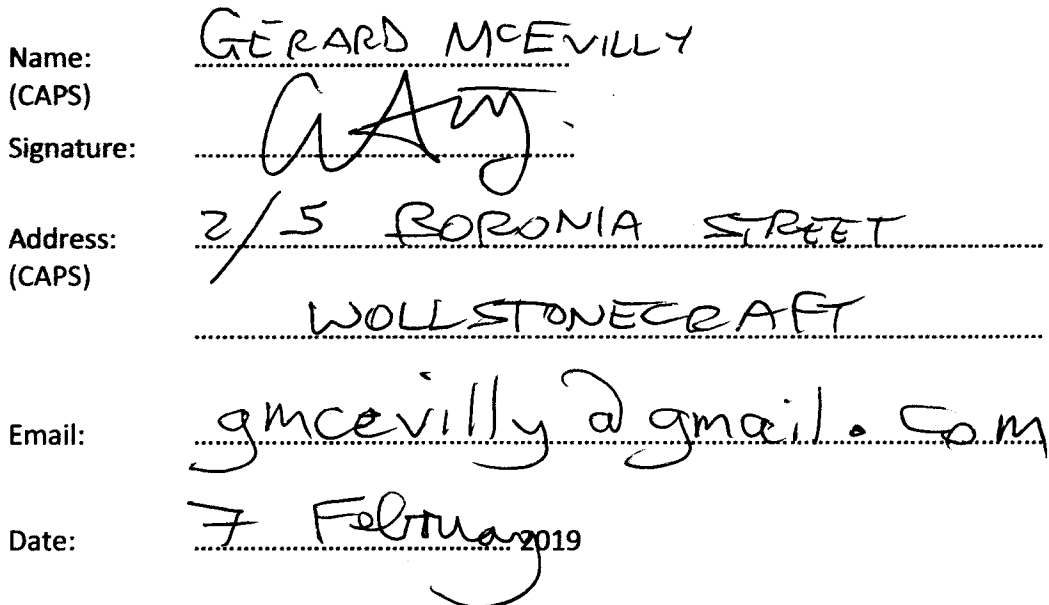 Name: GERARD McEVILLY
(CAPS)
Signature:
Address: 2/5 BORONIA STREET
(CAPS)
WOLLSTONECRAFT
Email: gmcevilly@gmail.com
Date: 7 February 2019